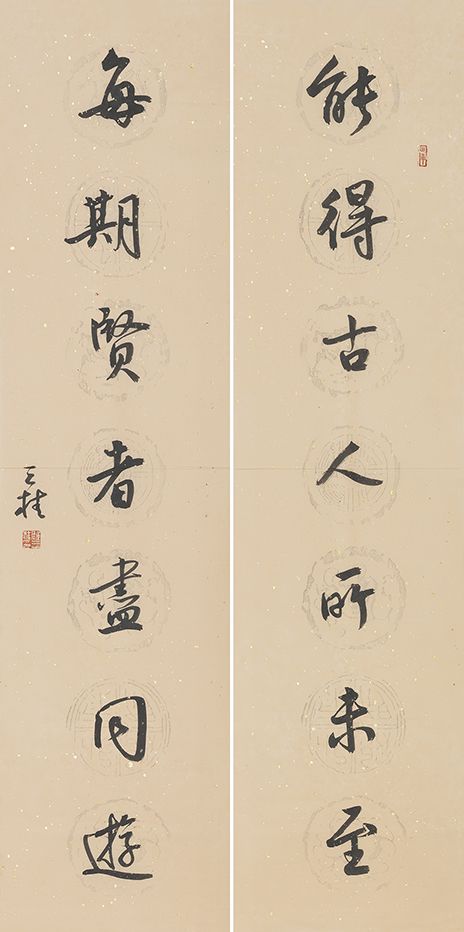 能得古人所未至
每期賢者盡同遊
三桂